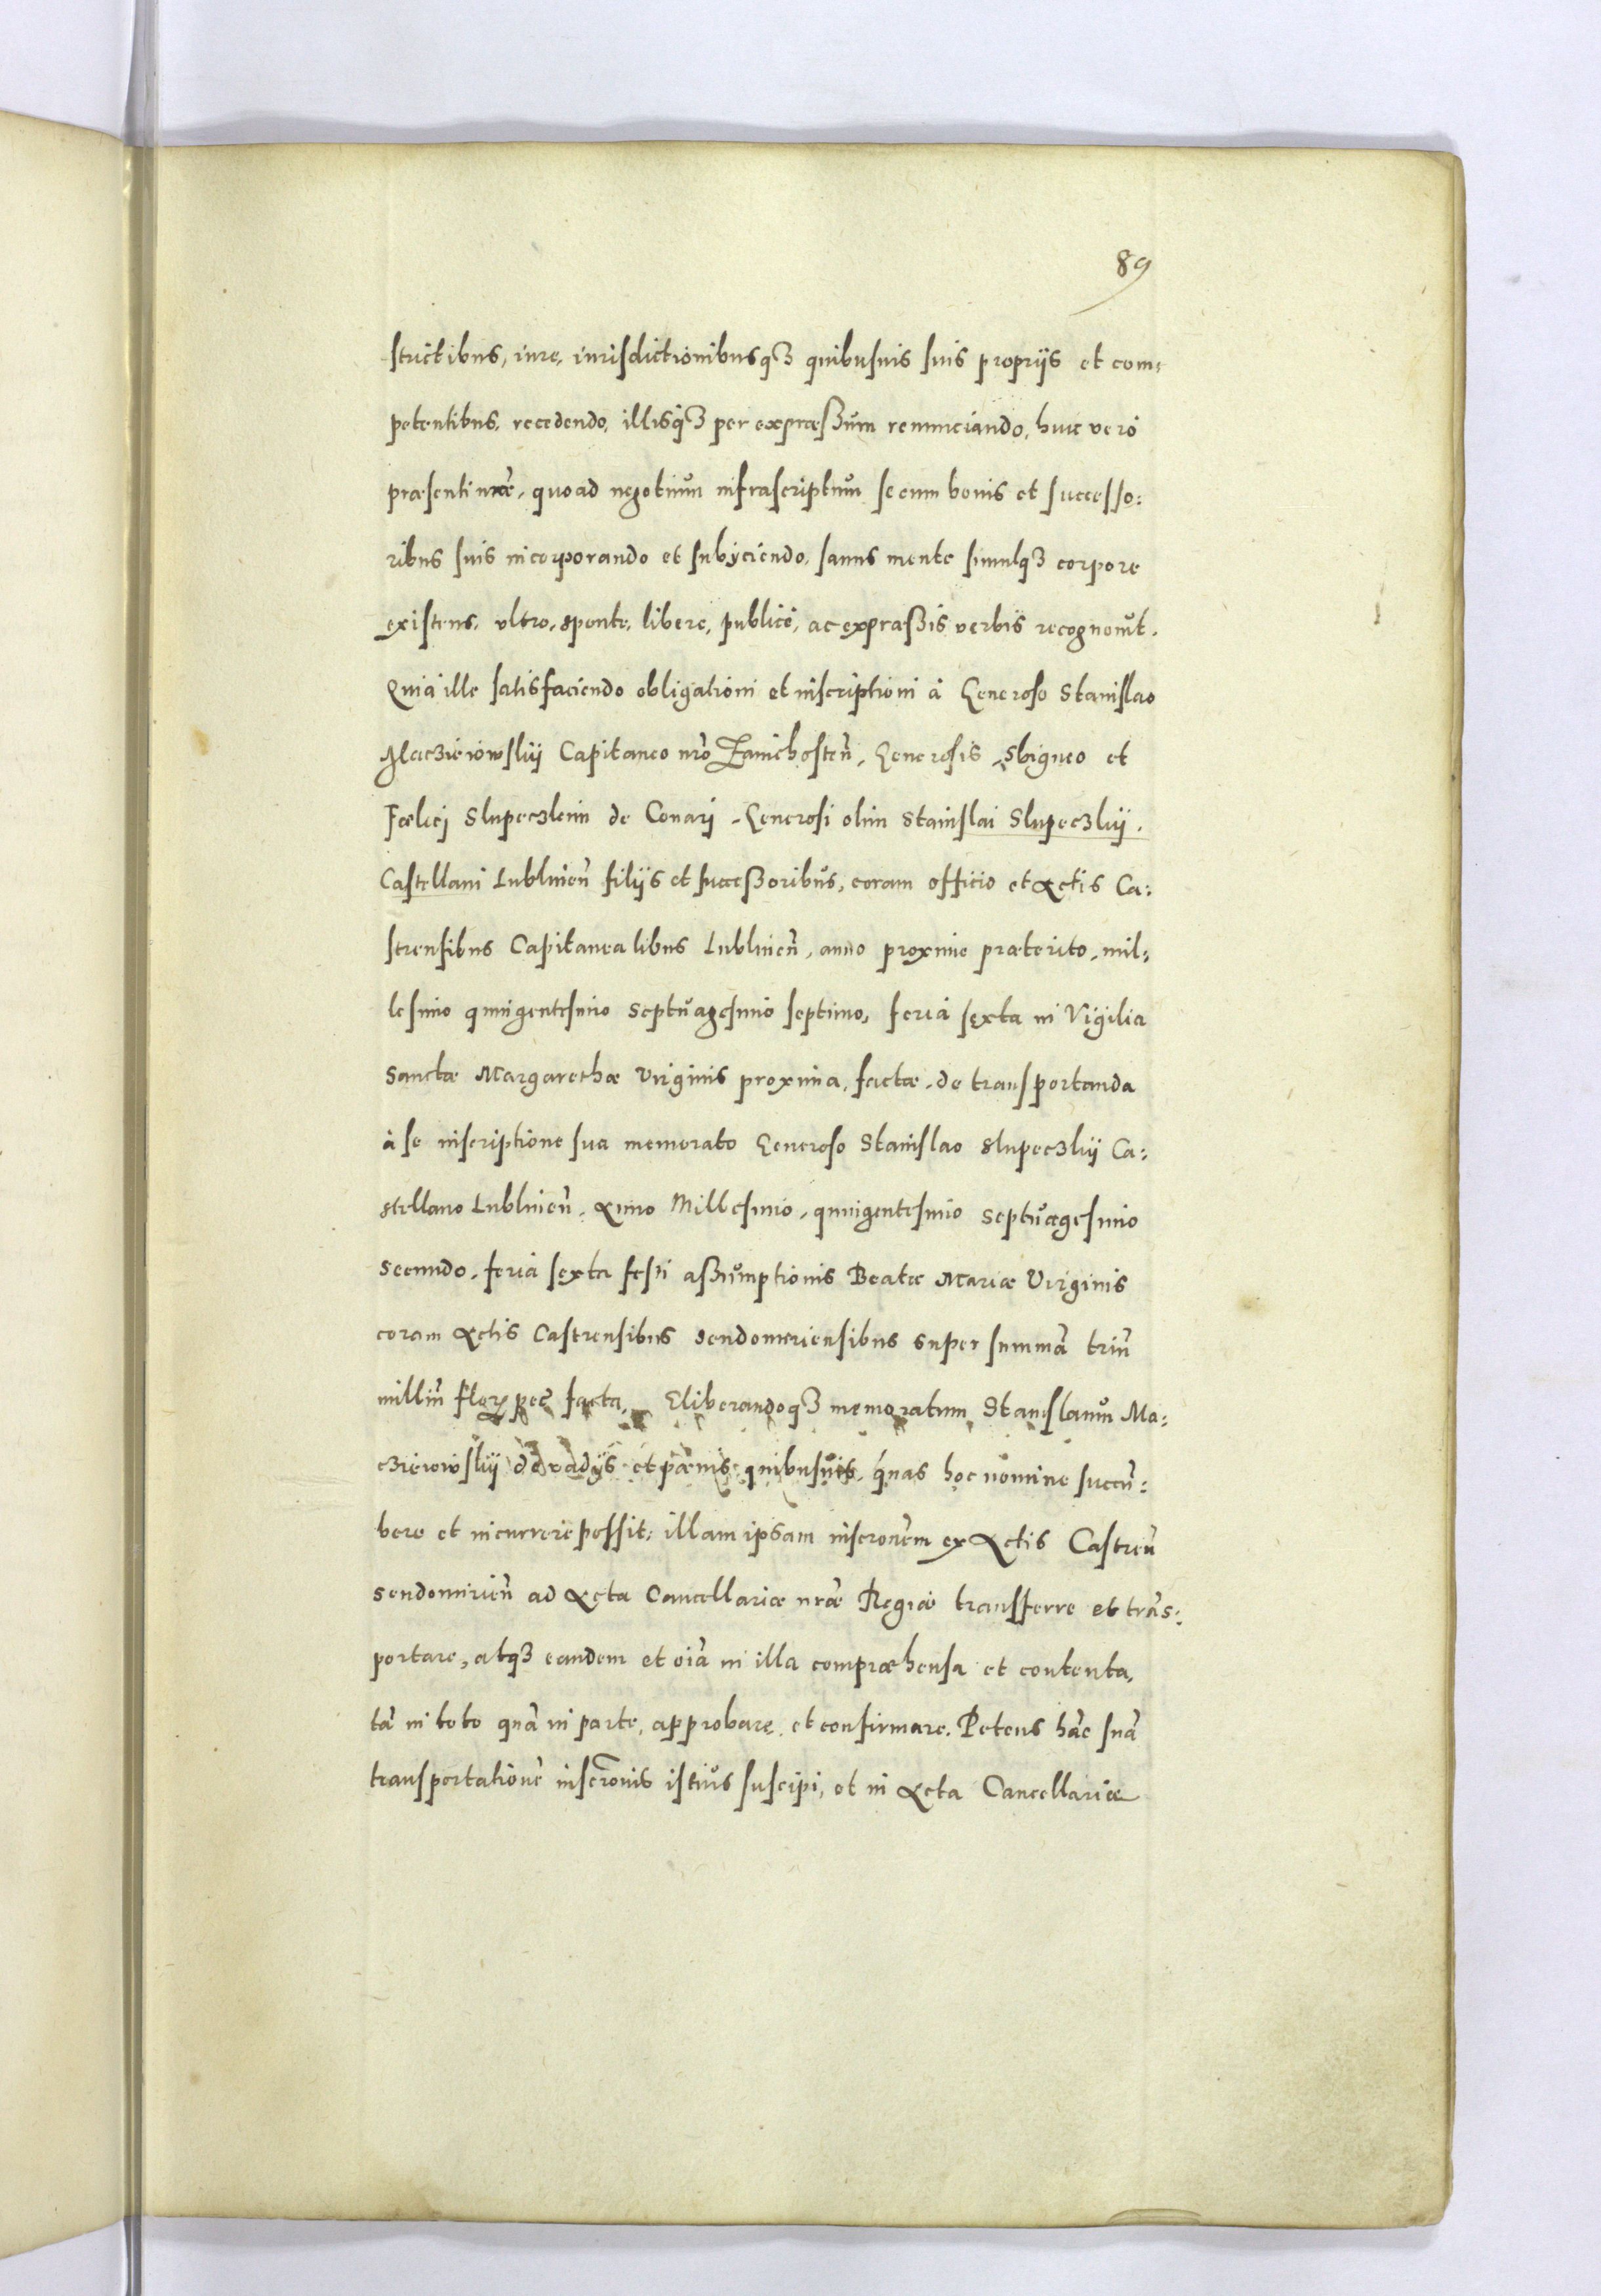 89
strictibus, iure, iurisdictionibusq3 quibusuis suis proprijs et com:
petentibus, recedendo, illisq3 per expræssum renunciando, huic verò
præsenti nræ, quoad negotium infrascriptum se cum bonis et successo:
ribus suis incorporando et subijciendo, sanus mente simulq3 corpore
existens, vltro, sponte, libere, publicè, ac expræssis verbis recognouit.
Quia ille satisfaciendo obligationi et inscriptioni à Generoso Stanislao
Maczieiowskij Capitaneo nrō Zawichosten̄, Generosis Sbigneo et
Fœlici Slupeczkim de Conarj, Generosi olim Stanislai Slupeczkij,
Castellani Lublinen̄ filijs et successoribus, coram officio et Actis Ca:
strensibus Capitanealibus Lublinen̄, anno proxime præterito, mil:
lesimo quingentesimo septuagesimo septimo, feria sexta in Vigilia
Sanctæ Margarethæ Virginis proxima, factæ, de transportanda
à se inscriptione sua memorato Generoso Stanislao Slupeczkij Ca:
stellano Lublinen̄, Anno Millesimo, quingentesimo septuagesimo
secundo, feria sexta festi assumptionis Beatæ Mariæ Virginis
coram Actis Castrensibus Sendomiriensibus super summā triū
milliū flor pec̄ facta, Eliberandoq3 memoratum Stanislaum Ma:
czieiowskij de vadijs et pœnis quibusuis, quas hoc nomine succū:
bere et incurrere possit, illam ipsam inscronem ex Actis Castren̄
Sendomirien̄ ad Acta Cancellariæ nræ Regiæ transferre et trās:
portare, atq3 eandem et oīa in illa compræhensa et contenta,
tā in toto quā in parte, approbare et confirmare. Petens hāc suā
transportationē inscronis istius suscipi, et in Acta Cancellariæ